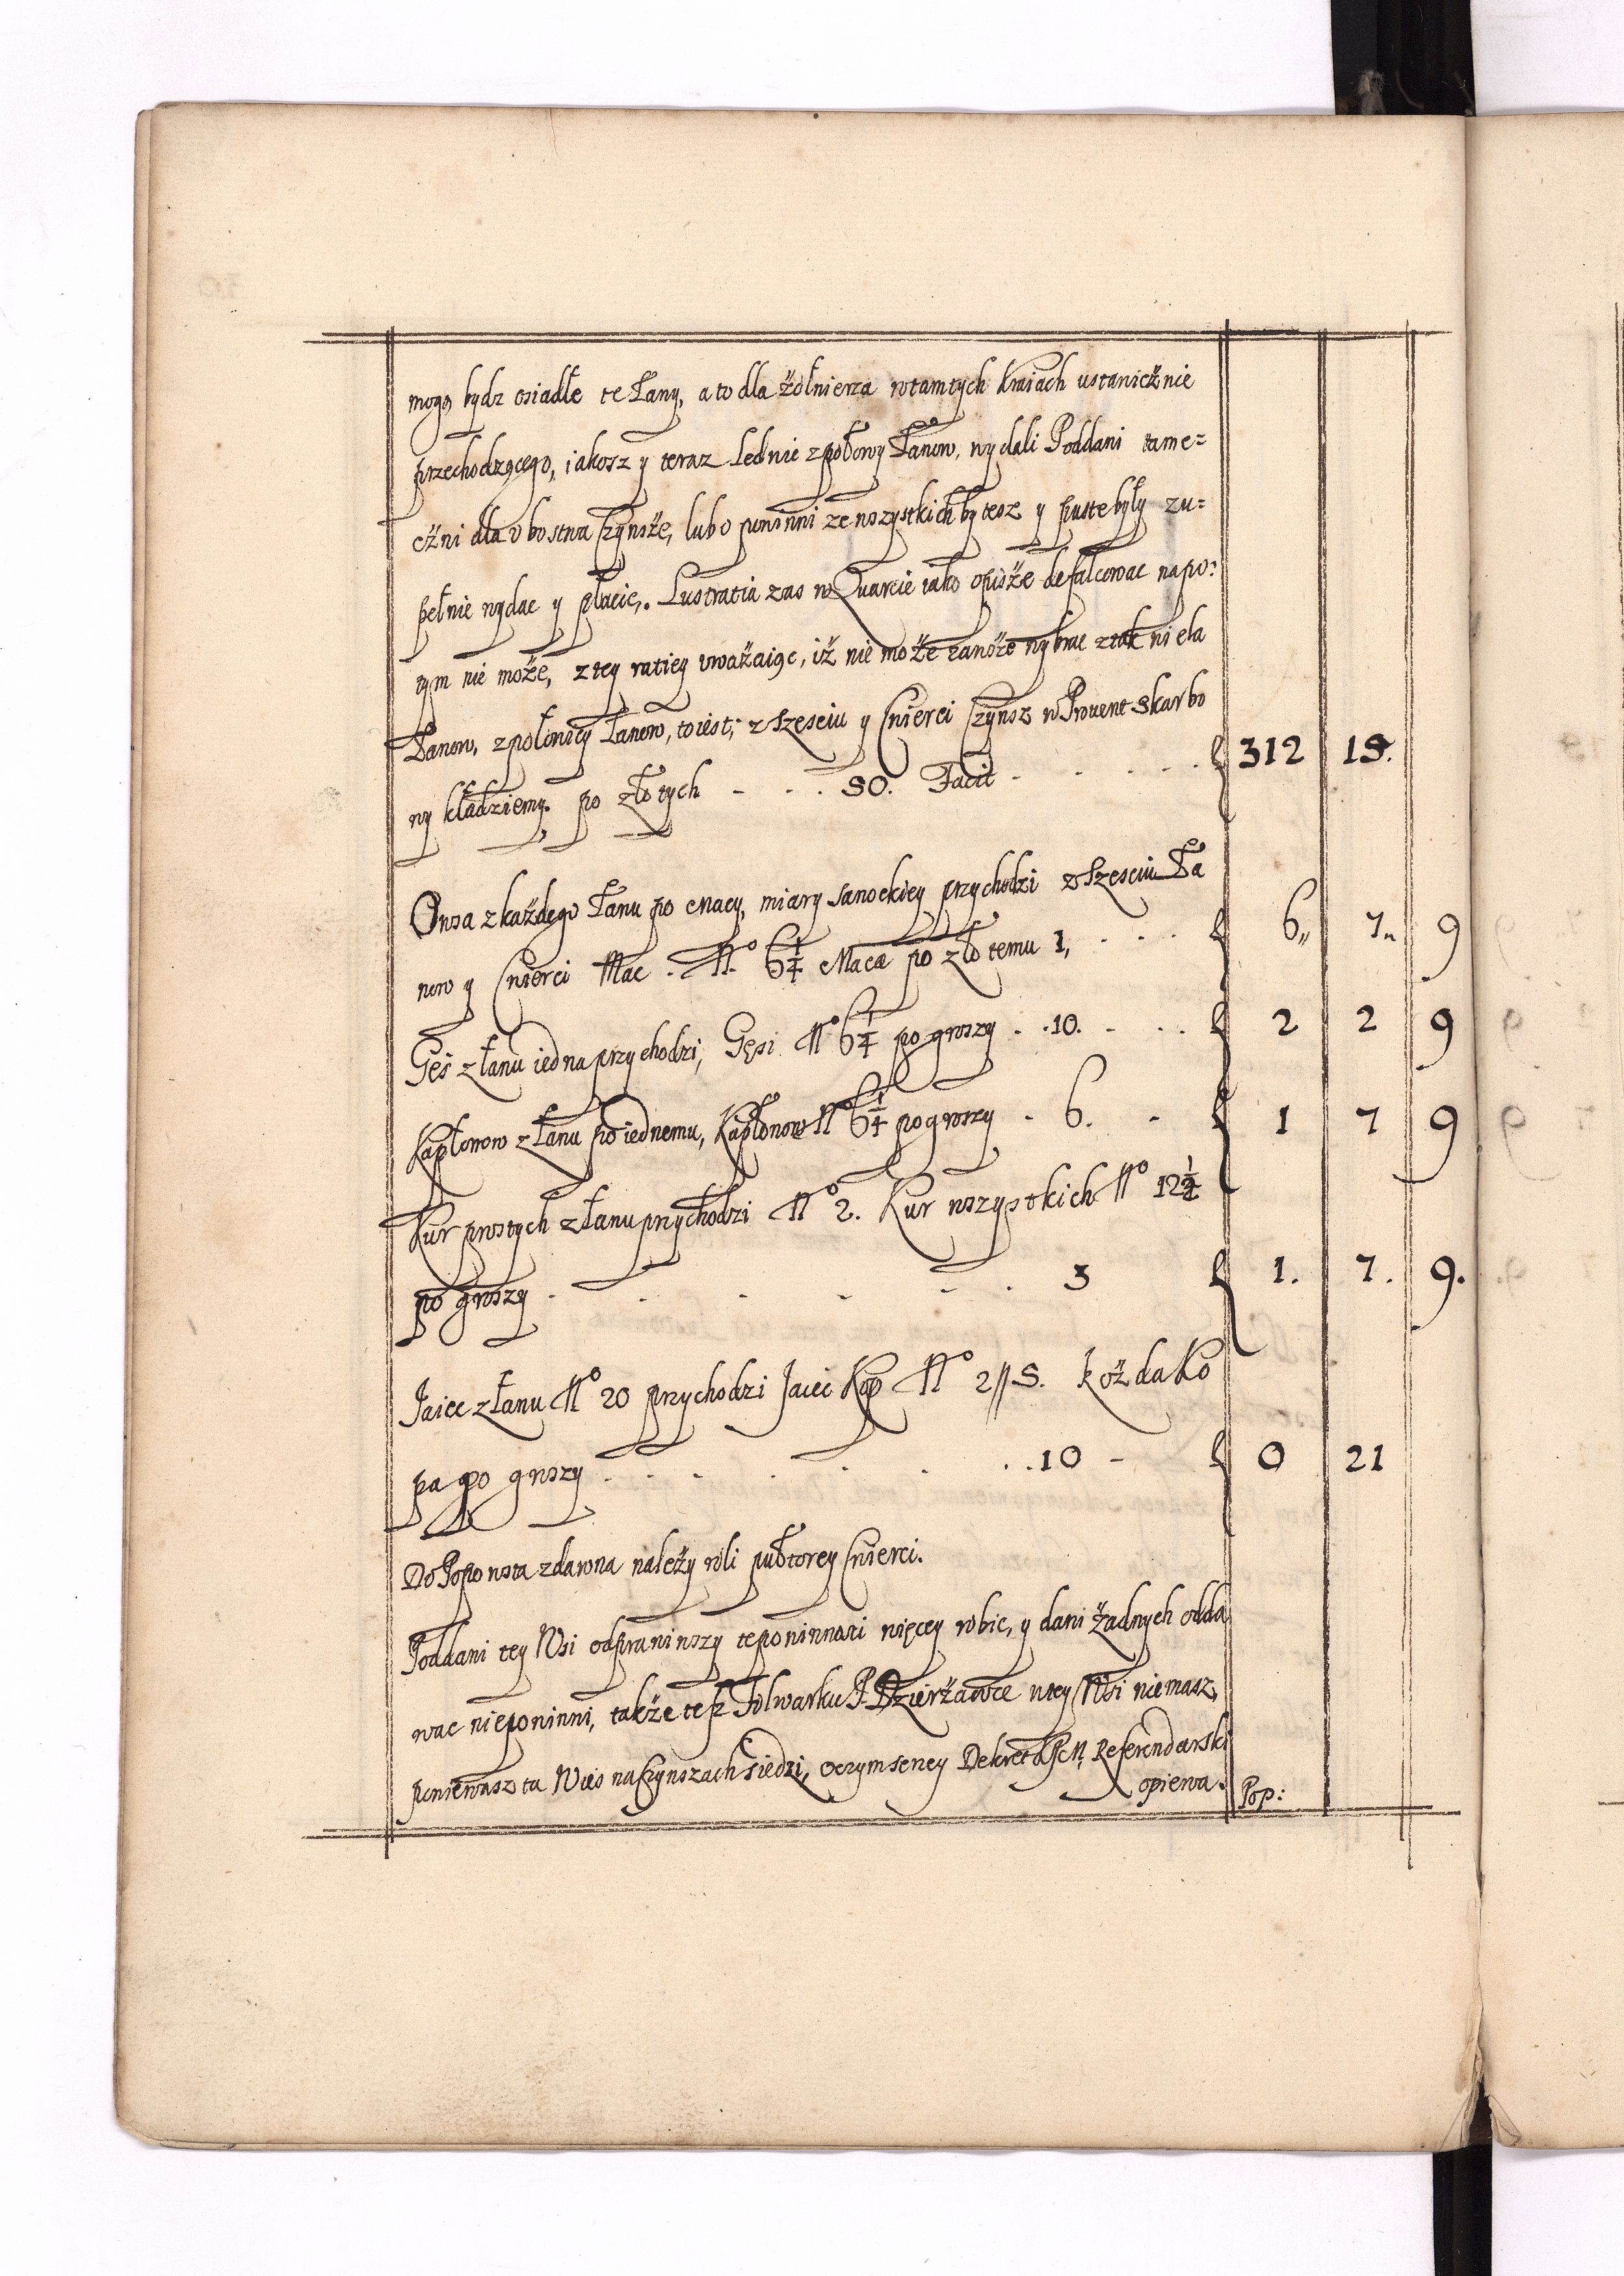 mogą bydz osiadłe te Łany, a to dla żołnierza w tamtych kraiach ustanicżnie
przechodzącego, iakosz y teraz ledwie z połowy Łanow, wydali Poddani tame=
cżni dla ubostwa Czynsże, lubo powinni ze wszystkich by tesz y puste były zu=
pełnie wydac y płacic. Lustratia zas w Quarcie iako opisże defalcowac na po=
tym nie może, z tey ratiey uważaiąc, iż nie może zawsże wybrac z tak wiela
Łanow, z połowicy Łanow, toiest; z Szesciu y Cwierci Czynsz w Prouent Skarbo
wy kładziemy. po złotych - . . 50. Facit . . . . . 312 15.
Owsa z każdego Łanu po Macy, miary Sanockiey przychodzi z Szesciu Ła
now y Cwierci Mac . No 6 1/4 Maca po złotemu 1, . . . 6,, 7,, 9
Gęś z Łanu iedna przychodzi, Gęsi No 6 1/4 po groszy . . 10. . . . 2 2 9
Kapłonow z Łanu po iednemu, Kapłonow No 6 1/4 po groszy - 6. - 1 7 9
Kur prostych z Łanu przychodzi No 2. Kur wszystkich No 12 1/2
po groszy . . . . . . 3 1. 7. 9.
Jaiec z Łanu No 20 przychodzi Jaiec Kop No 2// 5. każda Ko
pa po groszy . . . . . . . 10 - 0 21
Do Popowsta zdawna należy roli pułtorey Cwierci.
Poddani tey Wsi odprawiwszy te powinnosci więcey robic, y dani żadnych odda
wac niepowinni, także tesz Folwarku P. Dzierżawce w tey Wsi niemasz,
ponieważ ta Wies na Czynszach siedzi, o czym szerzey Dekret JKM, Referendarski
opiewa. Pop: